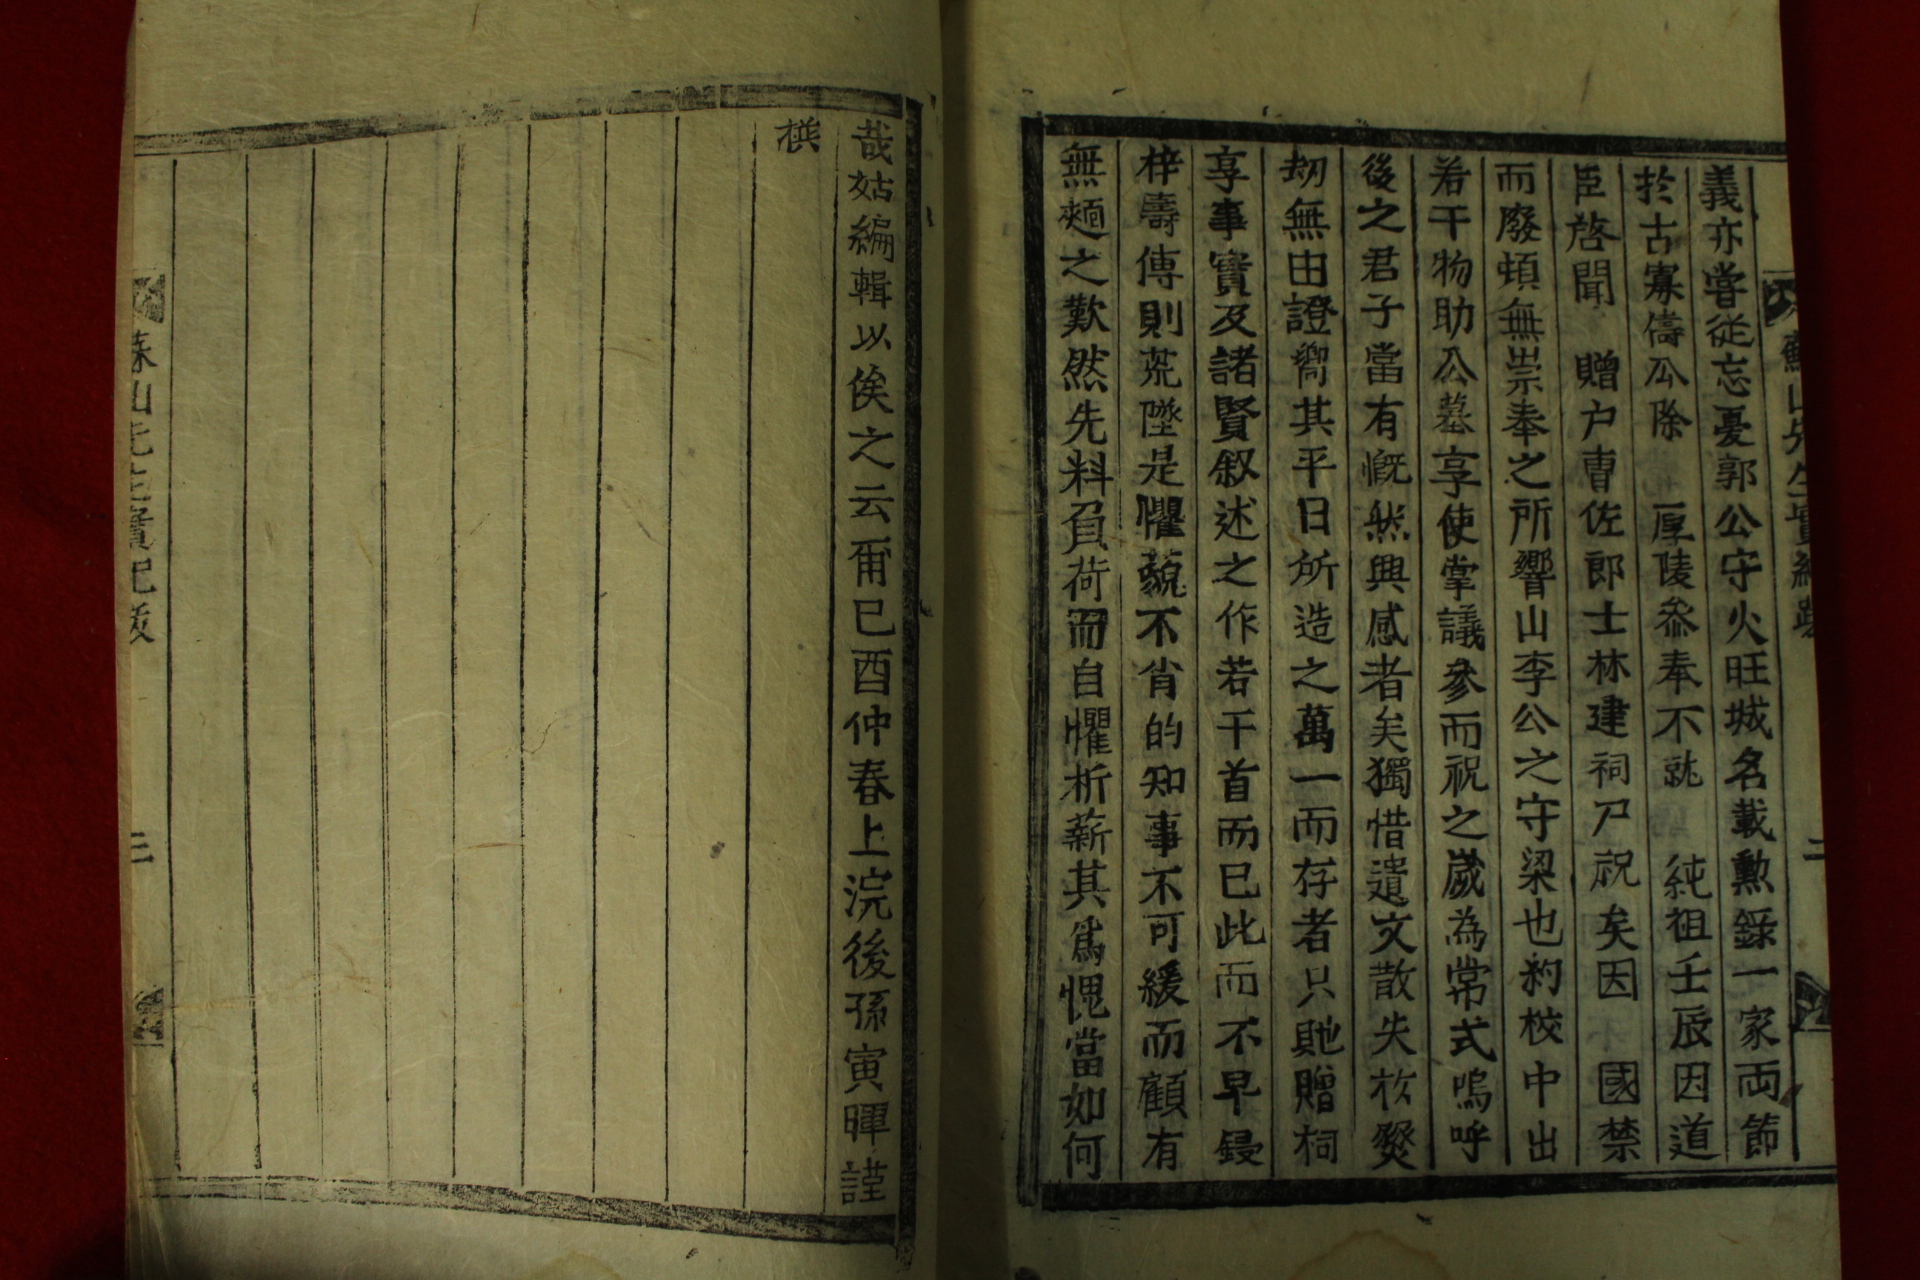 義亦嘗從忘憂郭公守火旺城名載勳錄一家兩節
於古寡儔公除　厚陵叅奉不就　純祖壬辰因道
臣啓聞　贈户曺佐郎士林建祠尸祝矣因　國禁
而廢頓無崇奉之所響山李公之守梁也約校中出
若干物助公墓享使掌議參而祝之歲為常式嗚呼
後之君子當有慨然興感者矣獨惜遺文散失於燹
刼無由證嚮其平日所造之萬一而存者只貤贈祠
享事實及諸賢叙述之作若干首而已此而不早鋟
梓壽傳則荒墜是懼藐不肖的知事不可緩而顧有
無麵之歎然先料負荷而自懼析薪其爲愧當如何
哉姑編輯以俟之云爾已酉仲春上浣後孫寅暉謹
撰
蘇山先生實紀跋
二
蘇山先生實紀跋
三